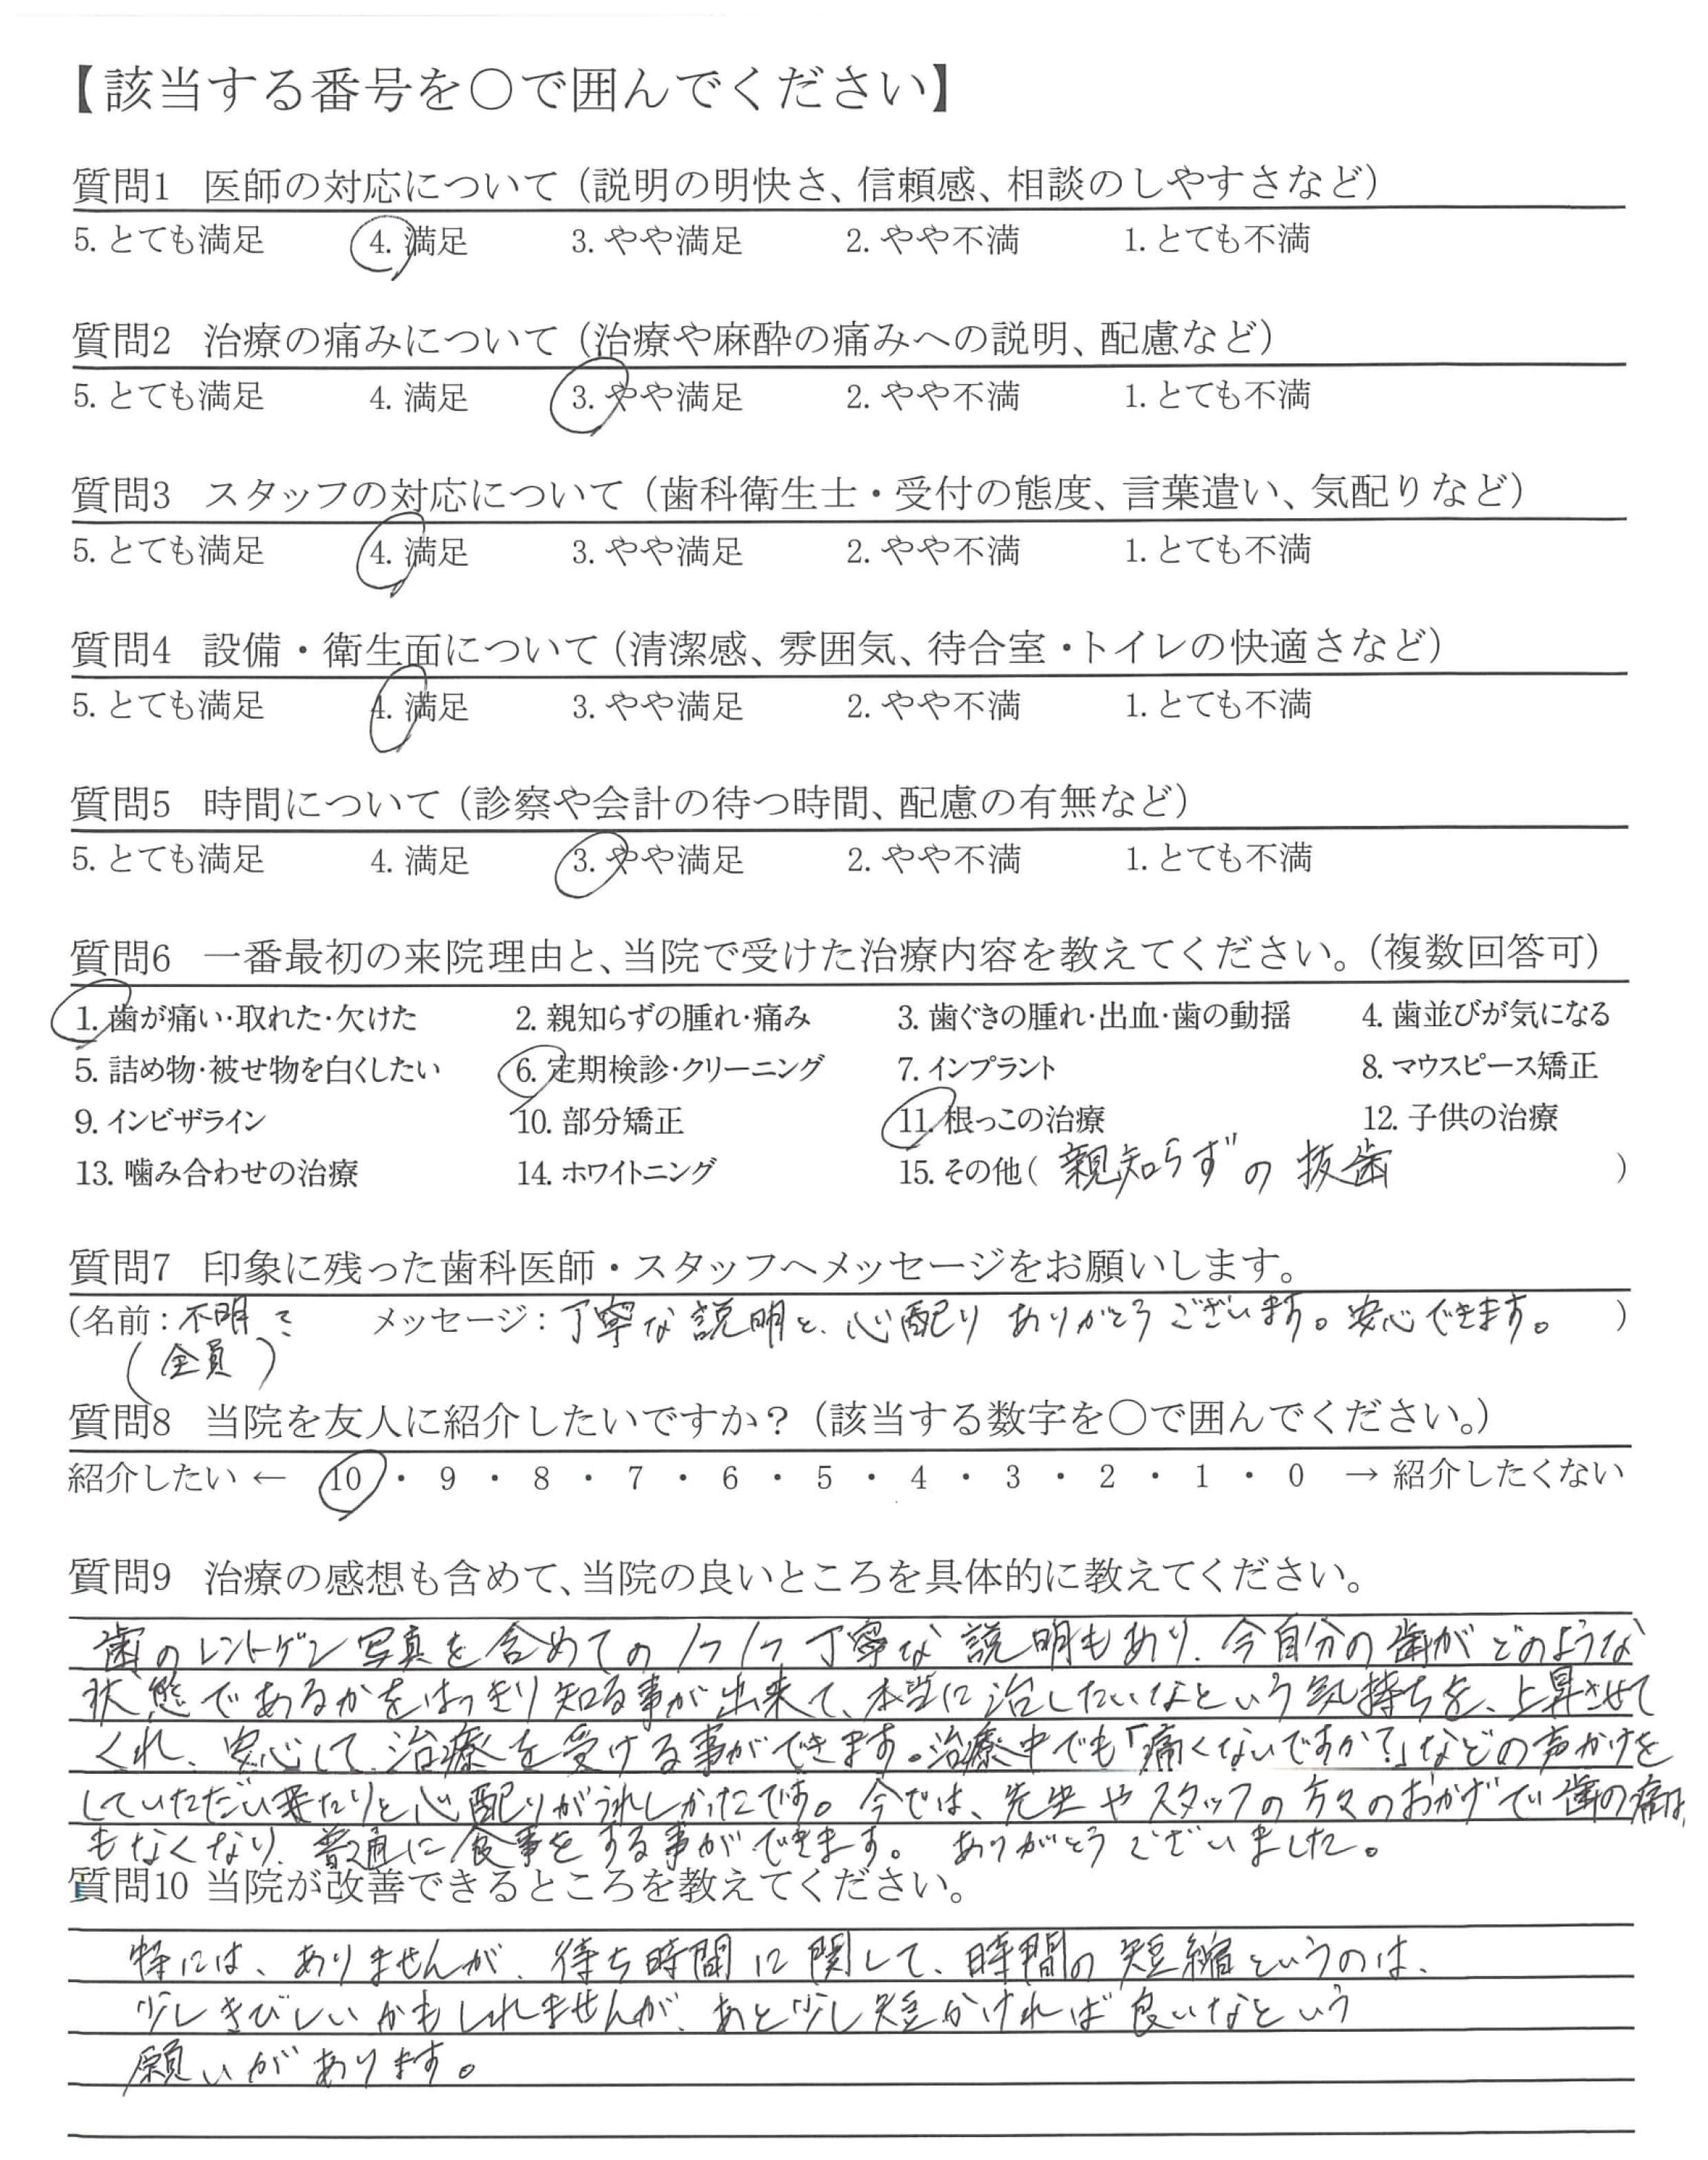 【該当する番号を〇で囲んでください】
質問1 医師の対応について（説明の明快さ、信頼感、相談のしやすさなど）
5. とても満足 4. 満足 3. やや満足 2. やや不満 1. とても不満
質問2 治療の痛みについて（治療や麻酔の痛みへの説明、配慮など）
5. とても満足 4. 満足 3. やや満足 2. やや不満 1. とても不満
質問3 スタッフの対応について（歯科衛生士・受付の態度、言葉遣い、気配りなど）
5. とても満足 4. 満足 3. やや満足 2. やや不満 1. とても不満
質問4 設備・衛生面について（清潔感、雰囲気、待合室・トイレの快適さなど）
5. とても満足 4. 満足 3. やや満足 2. やや不満 1. とても不満
質問5 時間について（診察や会計の待つ時間、配慮の有無など）
5. とても満足 4. 満足 3. やや満足 2. やや不満 1. とても不満
質問6 一番最初の来院理由と、当院で受けた治療内容を教えてください。（複数回答可）
1. 歯が痛い・取れた・欠けた 2. 親知らずの腫れ・痛み 3. 歯ぐきの腫れ・出血・歯の動揺 4. 歯並びが気になる
5. 詰め物・被せ物を白くしたい 6. 定期検診・クリーニング 7. インプラント 8. マウスピース矯正
9. インビザライン 10. 部分矯正 11. 根っこの治療 12. 子供の治療
13. 噛み合わせの治療 14. ホワイトニング 15. その他（ 親知らずの抜歯 ）
質問7 印象に残った歯科医師・スタッフへメッセージをお願いします。
（名前：不明で メッセージ：丁寧な説明と、心配りありがとうございます。安心できます。 ）
（全員）
質問8 当院を友人に紹介したいですか？（該当する数字を〇で囲んでください。）
紹介したい ← 10 ・ 9 ・ 8 ・ 7 ・ 6 ・ 5 ・ 4 ・ 3 ・ 2 ・ 1 ・ 0 → 紹介したくない
質問9 治療の感想も含めて、当院の良いところを具体的に教えてください。
歯のレントゲン写真を含めての1つ1つ丁寧な説明もあり、今自分の歯がどのような
状態であるかをはっきり知る事が出来て、本当に治したいなという気持ちを、上昇させて
くれ、安心して治療を受ける事ができます。治療中でも「痛くないですか？」などの声かけを
していただい来たりと心配りがうれしかったです。今では、先生やスタッフの方々のおかげで歯の痛み
もなくなり、普通に食事をする事ができます。ありがとうございました。
質問10 当院が改善できるところを教えてください。
特には、ありませんが、待ち時間に関して、時間の短縮というのは、
少しきびしいかもしれませんが、あと少し短かければ良いなという
願いがあります。